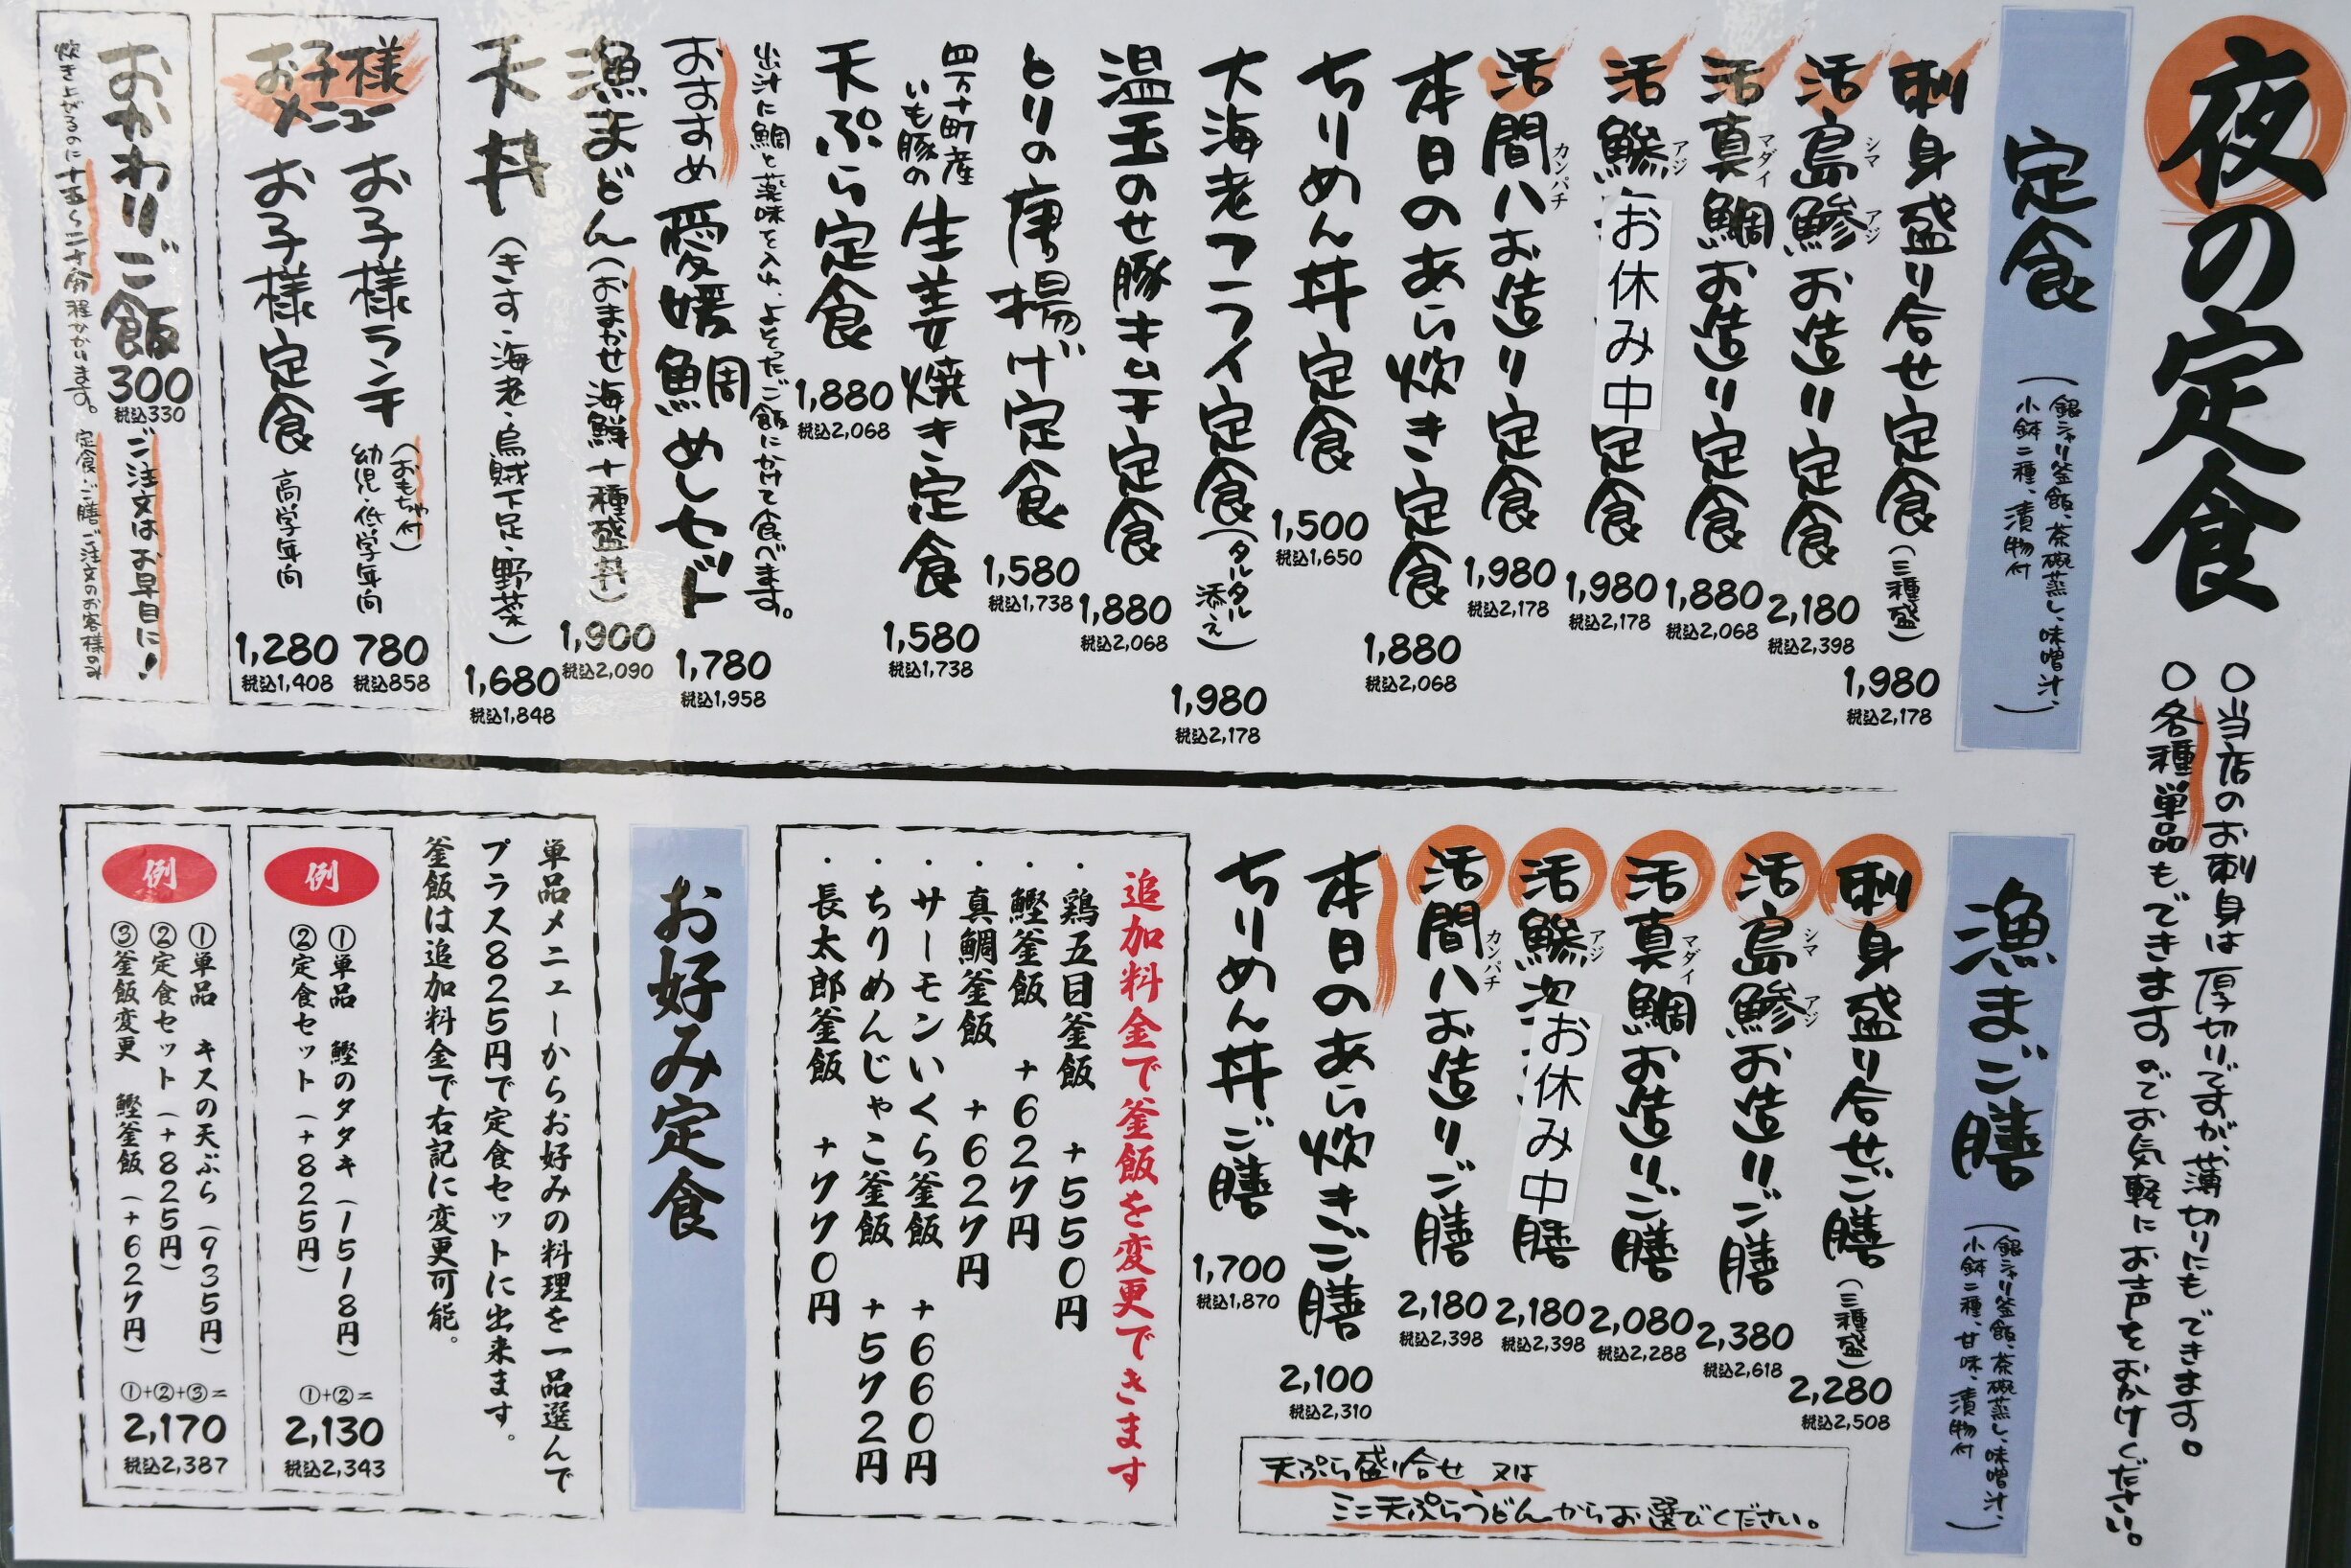 夜の定食
〇当店のお刺身は厚切りですが、薄切りにもできます。
〇各種単品もできますのでお気軽にお声をおかけください。
定食
（銀シャリ釜飯、茶碗蒸し、味噌汁、
小鉢二種、漬物付）
刺身盛り合せ定食（三種盛） 1,980
税込2,178
活島鯵お造り定食 2,180
シマアジ
税込2,398
活真鯛お造り定食 1,880
マダイ
税込2,068
活鯵 お休み中 定食 1,980
アジ
税込2,178
活間八お造り定食 1,980
カンパチ
税込2,178
本日のあら炊き定食 1,880
税込2,068
ちりめん丼定食 1,500
税込1,650
大海老フライ定食（タルタル添え） 1,980
税込2,178
温玉のせ豚キムチ定食 1,880
税込2,068
とりの唐揚げ定食 1,580
税込1,738
四万十町産
いも豚の生姜焼き定食 1,580
税込1,738
天ぷら定食 1,880
税込2,068
出汁に鯛と薬味を入れ、よそったご飯にかけて食べます。
おすすめ 愛媛鯛めしセット 1,780
税込1,958
漁まどん（おまかせ海鮮十種盛丼） 1,900
税込2,090
天丼（きす・海老・烏賊下足・野菜） 1,680
税込1,848
お子様
メニュー
お子様ランチ（おもちゃ付）
幼児・低学年向 780
税込858
お子様定食 高学年向 1,280
税込1,408
おかわりご飯 300
税込330
ご注文はお早目に！
炊き上がるのに十五〜二十分程かかります。定食・ご膳ご注文のお客様のみ
漁まご膳
（銀シャリ釜飯、茶碗蒸し、味噌汁、
小鉢二種、甘味、漬物付）
刺身盛り合せご膳（三種盛） 2,280
税込2,508
活島鯵お造りご膳 2,380
シマアジ
税込2,618
活真鯛お造りご膳 2,080
マダイ
税込2,288
活鯵 お休み中 膳 2,180
アジ
税込2,398
活間八お造りご膳 2,180
カンパチ
税込2,398
本日のあら炊きご膳 2,100
税込2,310
ちりめん丼ご膳 1,700
税込1,870
天ぷら盛り合せ 又は
ミニ天ぷらうどんからお選びください。
追加料金で釜飯を変更できます
・鶏五目釜飯 +550円
・鰹釜飯 +627円
・真鯛釜飯 +627円
・サーモンいくら釜飯 +660円
・ちりめんじゃこ釜飯 +572円
・長太郎釜飯 +770円
お好み定食
単品メニューからお好みの料理を一品選んで
プラス825円で定食セットに出来ます。
釜飯は追加料金で右記に変更可能。
例
①単品 鰹のタタキ（1518円）
②定食セット（+825円）
①+②=
2,130
税込2,343
例
①単品 キスの天ぷら（935円）
②定食セット（+825円）
③釜飯変更 鰹釜飯（+627円）
①+②+③=
2,170
税込2,387